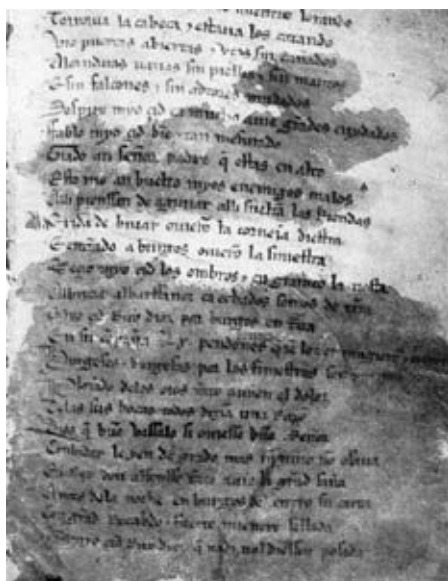 mientre lorando
Tornaua la cabeça τ estaua los catando
Vio puertas abiertas τ vços sin cañados
Alcandaras uazias sin pielles τ sin mantos
E sin falcones τ sin adtores mudados
Sospiro myo çid ca mucho auie grãdes cuydados
Fablo myo çid biẽ τ tan mesurado
Grado señor padre q̃ estas en alto
Esto me an buelto myos enemigos malos
Alli pienssan de aguiiar alli sueltã las Riendas
exida de biuar ouierõ la corneia diestra
E entrãdo a burgos ouierõ la siniestra
myo çid los ombros τ en grameo la tiesta
albarffanez ca echados somos de tr̃ra
Myo çid Ruy diaz por burgos en
En su cõpaña .Lx. pendones
Burgeses τ burgesas por las siniestras
delos oios tãto auien el dolor
Delas sus bocas todos dizian una Razõ
Dios q̃ buẽ vassalo si ouiesse buẽ Señor
Conbidar le yen de grado mas nĩguno no osaua
El Rey don alfonsso tãto auie la grãd saña
Antes dela noche en burgos del entro su carta
Con grãd Recabdo τ fuerte mientre sellada
myo çid Ruy diaz q̃ nadi nol diessen posada